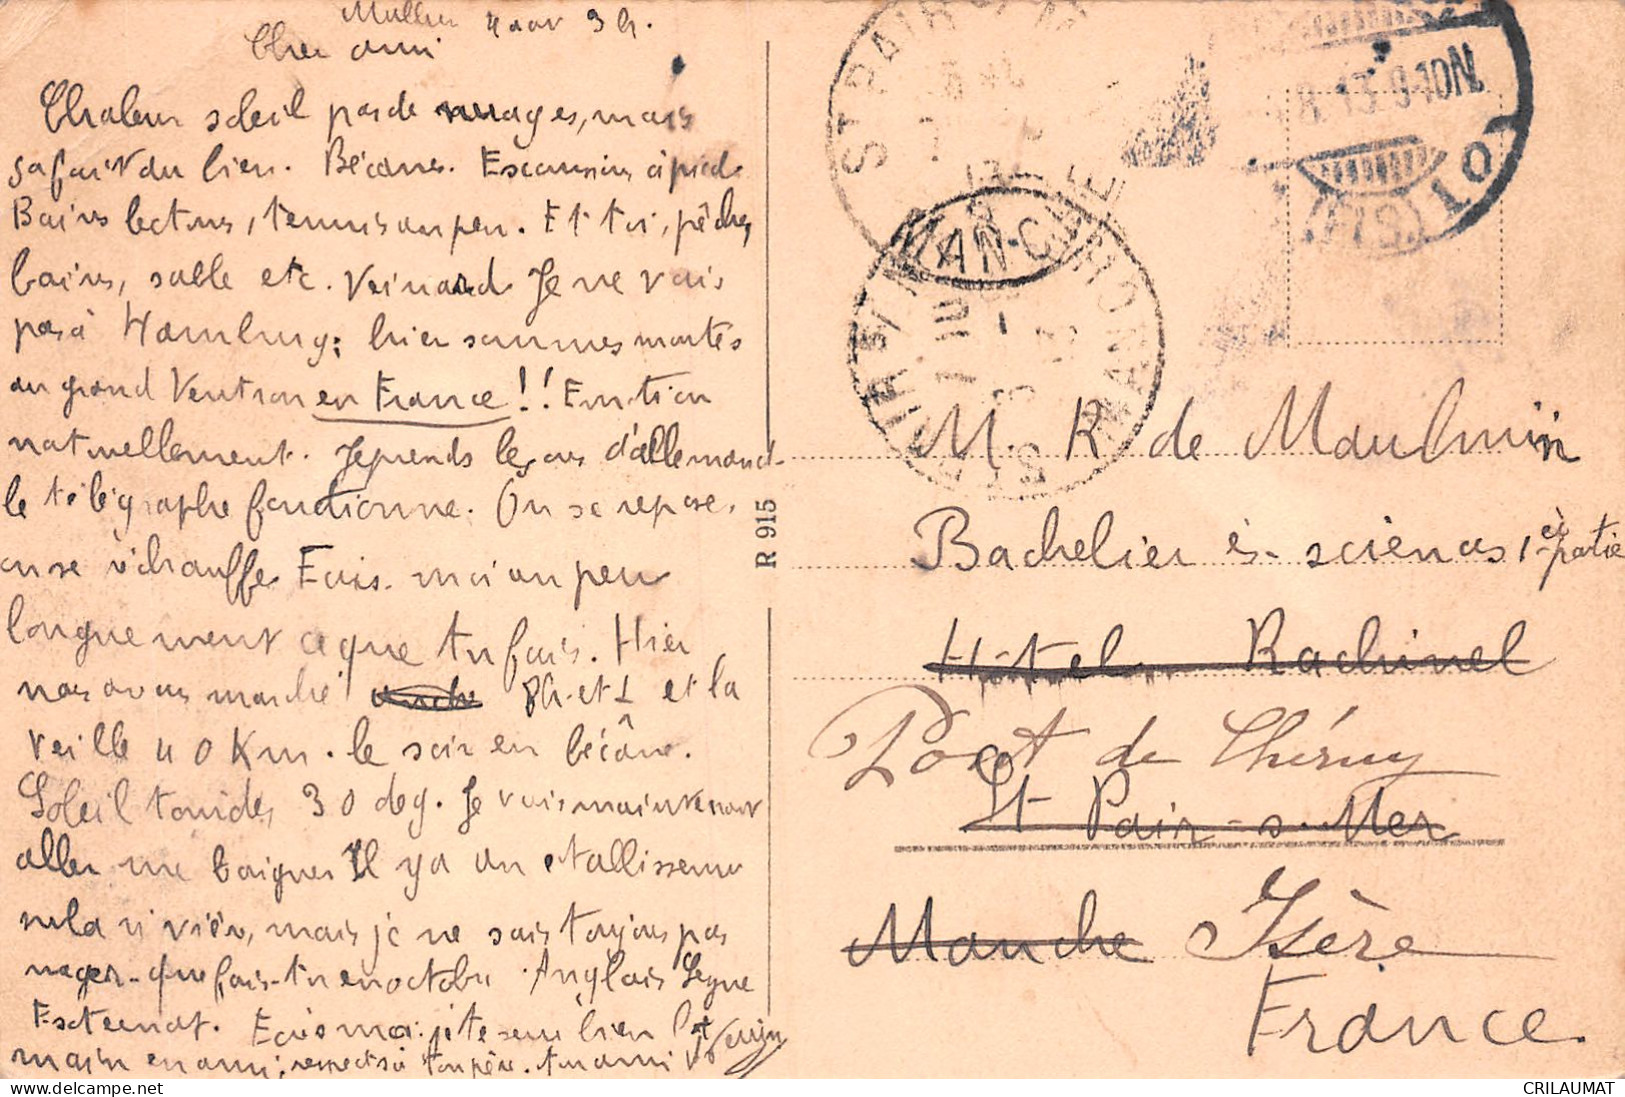 4 aou 3h.
Cher ami
Chaleur soleil pas de nuages, mais
ça fait du bien. Bécane. Excursions à pied
Bains lectures, tennis un peu. Et toi, pêches,
bains, sable etc. Veinard Je ne vais
pas à Hambourg; hier sommes montés
au grand Ventron en France !! Emotion
naturellement. Je prends leçons d'allemand.
le télégraphe fonctionne. On se repose,
on se réchauffe Ecris-moi un peu
longuement ce que tu fais. Hier
nous avons marché 8h et ½ et la
veille 40 Km. le soir en bécane.
Soleil tourides 30 deg. Je vais maintenant
aller me baigner Il y a un etablisseme
sur la rivière, mais je ne sais toujours pas
nager. que fais-tu en octobre. Anglais
Externat. Ecris moi. je te serre bien la
main en ami; respects à ton père. ton ami
R 915
ST PAIR S MER
MANCHE
8.13.9-10N
M. R de Maulmin
Bachelier ès-sciences 1è partie
Hôtel Rachinel
Pont de Chéruy
St Pair-s-Mer
Manche Isère
France.
CRILAUMAT